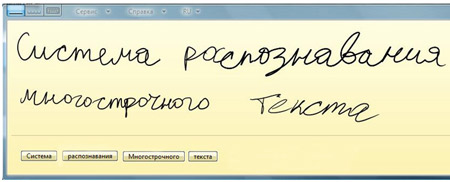 Сервис Справка
Система распознавания
многострочного текста
Система распознавания Многострочного текста